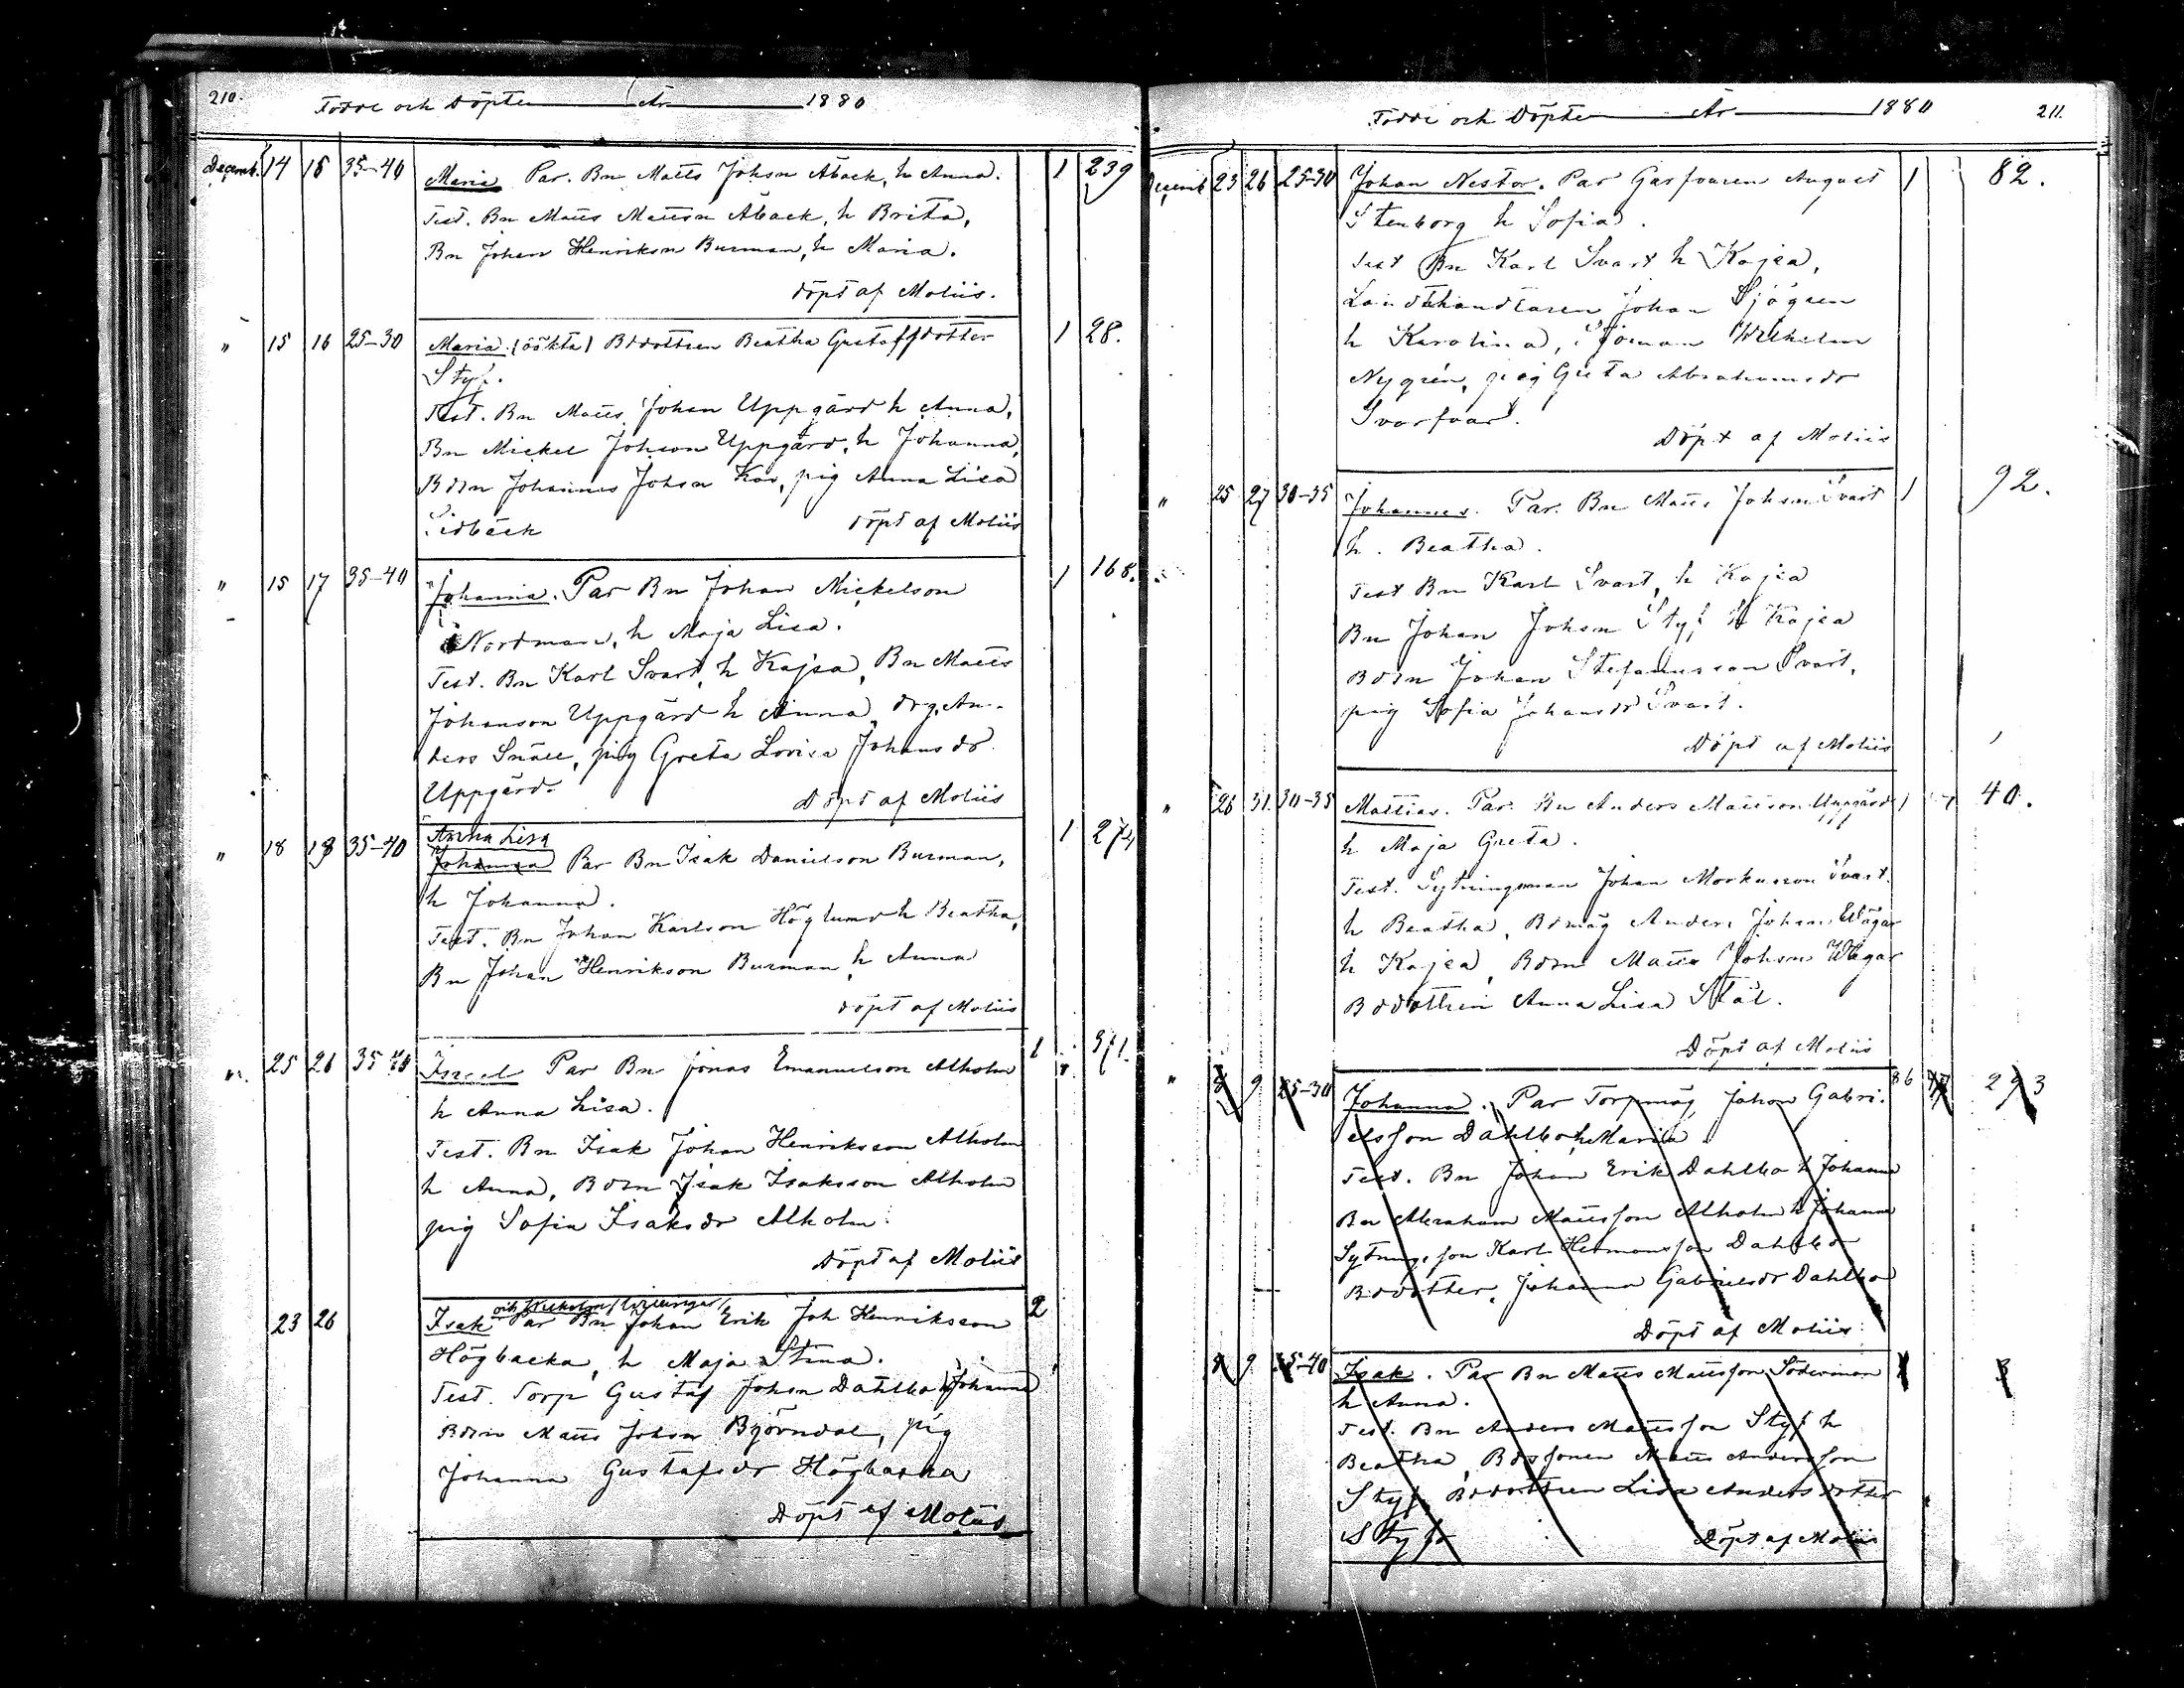 210. Födde och Döpte År 1880
Decemb. 14 15 35-40 Maria Par. Bn Matts Johsn Åback, h Anna. 1 239
Test. Bn Matts Mattsn Åback, h Brita,
Bn Johan Henrikson Burman, h Maria.
döpt af Moliis.
" 15 16 25-30 Maria (oäkta) Bdottren Beatha Gustafsdotter 1 28.
Styf.
Test. Bn Matts Johan Uppgård h Anna,
Bn Mickel Johson Uppgård, h Johanna,
Bdsn Johannes Johsn Kar, pig Anna Lisa
Sidbäck döpt af Moliis
" 15 17 35-40 Johanna. Par Bn Johan Mickelson 1 168.
Nordman, h Maja Lisa.
Test. Bn Karl Svart, h Kajsa, Bn Matts
Johanson Uppgård h Anna, drg. An-
ders Snäll, pig Greta Lovisa Johansdr
Uppgård. Döpt af Moliis
Anna Lisa
" 18 19 35-40 Johanna Par Bn Isak Danielson Burman, 1 274
h Johanna.
Test. Bn Johan Karlson Höglund h Beatha,
Bn Johan Henrikson Burman, h Anna
döpt af Moliis
25 26 35-40 Israel Par Bn Jonas Emanuelson Alholm 1 371.
h Anna Lisa.
Test. Bn Isak Johan Henriksson Alholm
h Anna, Bdsn Isak Isaksson Alholm
pig Sofia Isaksdr Alholm.
Döpt af Moliis
och Wilhelm /tvillingar/
23 26 Isak Par Bn Johan Erik Joh Henriksson 2
Högbacka, h Maja Stina.
Test. Torp Gustaf Johsn Dahlbo h Johanna
Bdsn Matts Johsn Björndal, pig
Johanna Gustafsdr Högbacka
Döpt af Moliis
Födde och Döpte År 1880 211.
Decemb 23 26 25-30 Johan Nestor. Par Garfvaren August 1 82.
Stenborg h Sofia.
Test Bn Karl Svart h Kajsa,
Landthandlaren Johan Sjögren
h Karolina, Sjöman Wilhelm
Nygrén, pig Greta Abrahamsdr
Svarfvar.
Döpt af Moliis
" 25 27 30-35 Johannes. Par. Bn Matts Johsn Svart 1 92.
h. Beatha.
Test Bn Karl Svart, h Kajsa
Bn Johan Johsn Styf h Kajsa
Bdsn Johan Stefanusson Svart,
pig Sofia Johansdr Svart.
Döpt af Moliis
" 26 31. 30-35 Mattias. Par. Bn Anders Mattson Uppgård 1 40.
h Maja Greta.
Test. Sytningsman Johan Markusson Svart.
h Beatha, Bdmåg Anders Johans Wägar
h Kajsa, Bdsn Matts Johsn Wägar
Bdottren Anna Lisa Stål.
Döpt af Moliis
" 8 9 25-30 Johanna. Par Torpmåg Johan Gabri- 293
elsson Dahlbo, h Maria.
Test. Bn Johan Erik Dahlbo h Johanna
Bn Abraham Mattsson Alholm h Johanna
Sytningsson Karl Hermansson Dahlbo
Bdotter. Johanna Gabrielsdr Dahlbo
Döpt af Moliis.
8 9 35-40 Isak. Par Bn Matts Mattsson Söderman
h Anna.
Test. Bn Anders Mattsson Styf h
Beatha, Bdssonen Matts Andersson
Styf, Bdottren Lisa Andersdotter
Styf Döpt af Moliis